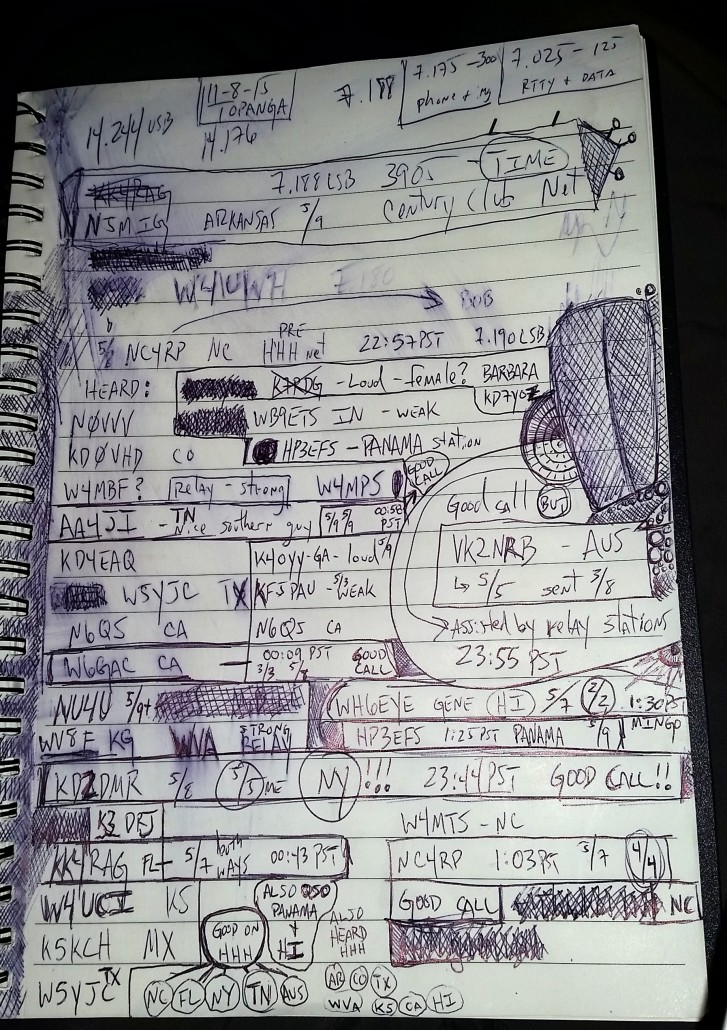 11-8-15
TOPANGA
7.188
7.175-300
phone +
7.025-125
RTTY + DATA
14.244 USB
14.176
7.188 LSB 3905 - TIME
Century Club Net
N5MIG ARKANSAS 5/9
W4IUWH 7.180
BOB
NC4RP NC PRE HHH net 22:57 PST 7.190 LSB
HEARD: K7RDG - Loud - female? BARBARA
NØVVV WB9ETS IN - WEAK
KDØVHD CO HP3EFS - PANAMA station
W4MBF? Relay - strong W4MPS GOOD CALL
AA4JI - TN Nice southern guy 5/9 5/9 00:58 PST
Good call BUT
VK2NRB - AUS
↳ 5/5 sent 3/8
Assisted by relay stations
23:55 PST
KD4EAQ K4OYY-GA - loud 5/9
W5YJC TX KF5PAU - 5/3 WEAK
N6QS CA N6QS CA
W6GAC CA - 00:09 PST 3/3 5/8 GOOD CALL
NU4U 5/9+ WH6EYE GENE HI 5/7 2/2 1:30 PST
WV8F WVA STRONG RELAY HP3EFS 1:25 PST PANAMA 5/9 MINGO
KD2DMR 5/8 5/5 ME NY!!! 23:44 PST GOOD CALL!!
K3 W4MTS - NC
KK4RAG FL - 5/7 both WAYS 00:43 PST NC4RP 1:03 PST 5/7 4/4
W4UCI KS ALSO QSO PANAMA + HI GOOD CALL NC
K5KCH MX GOOD ON HHH ALSO HEARD HHH
W5YJC TX NC FL NY TN AUS AR CO TX
WVA KS CA HI